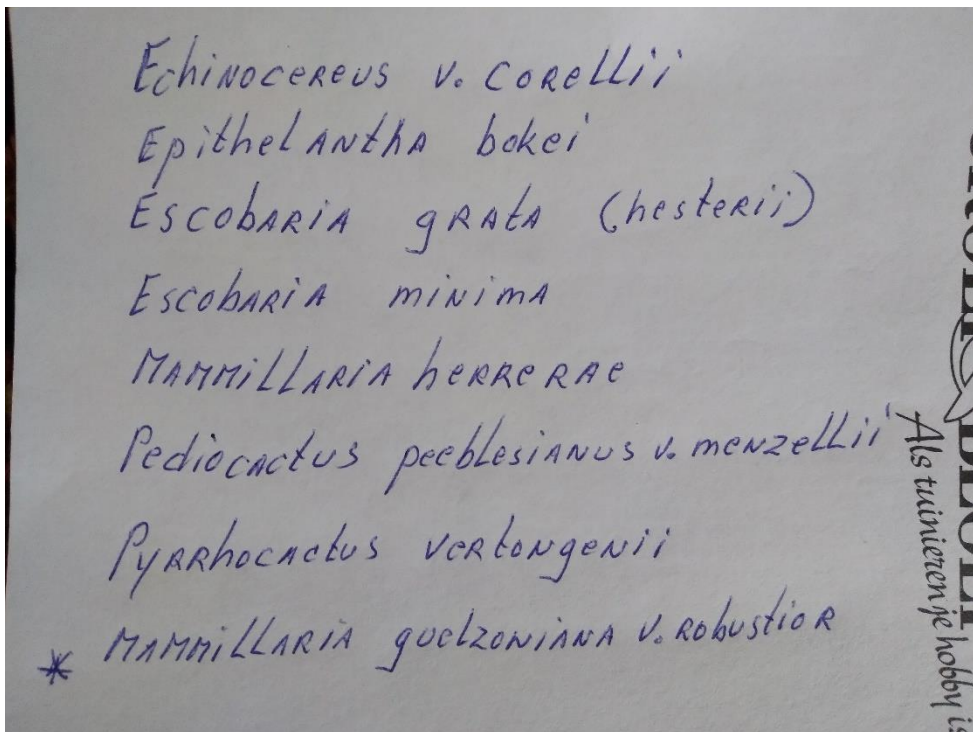 Echinocereus v. corellii
Epithelantha bokei
Escobaria grata (hesterii)
Escobaria minima
Mammillaria herrerae
Pediocactus peeblesianus v. menzellii
Pyrrhocactus vertongenii
* Mammillaria guelzoniana v. robustior
Als tuinieren je hobby is